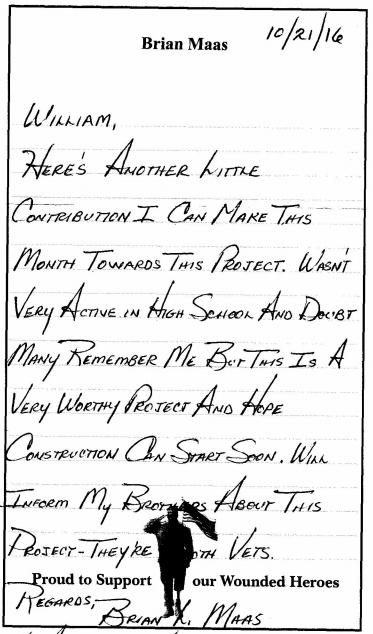 Brian Maas
10/21/16
WILLIAM,
HERE'S ANOTHER LITTLE
CONTRIBUTION I CAN MAKE THIS
MONTH TOWARDS THIS PROJECT. WASN'T
VERY ACTIVE IN HIGH SCHOOL AND DOUBT
MANY REMEMBER ME BUT THIS IS A
VERY WORTHY PROJECT AND HOPE
CONSTRUCTION CAN START SOON. WILL
INFORM MY BROTHERS ABOUT THIS
PROJECT - THEY'RE BOTH VETS.
Proud to Support our Wounded Heroes
REGARDS,
BRIAN K. MAAS